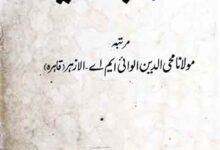 مرتبہ
مولانا محی الدین الوائی ایم اے - الازہر (قاہرہ)